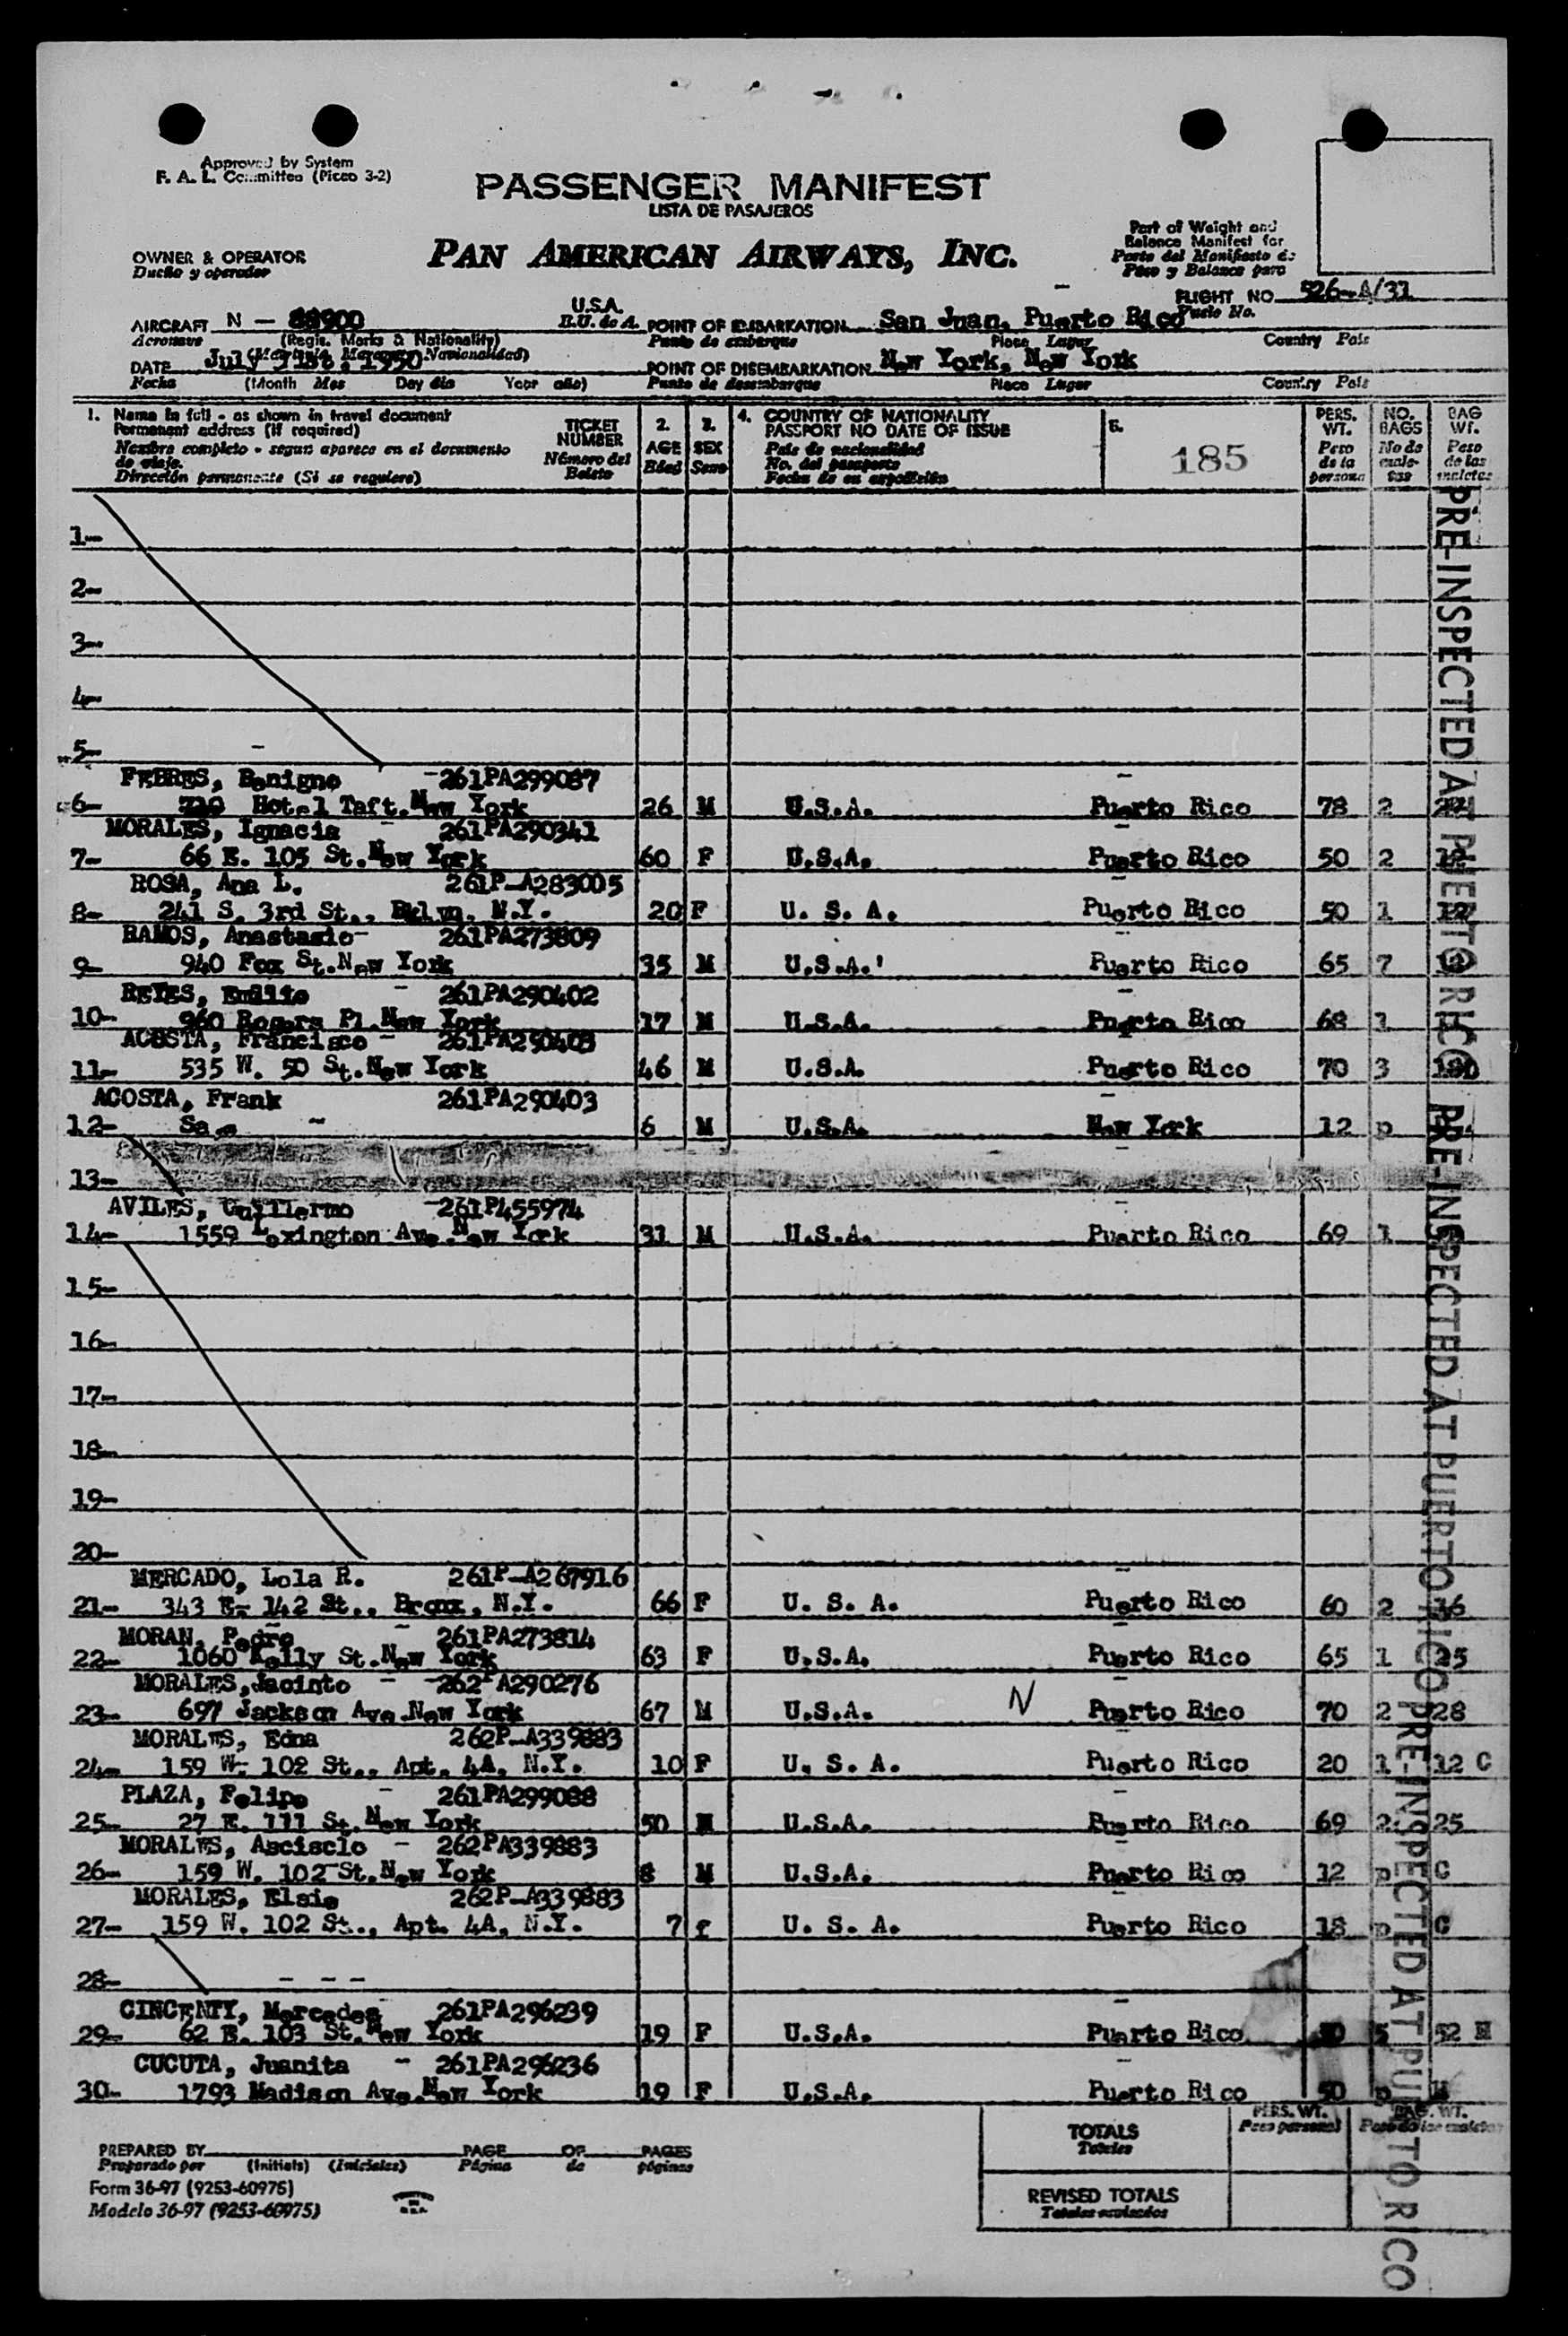 Approved by System
F. A. L. Committee (Picao 3-2)
PASSENGER MANIFEST
LISTA DE PASAJEROS
Part of Weight and
Balance Manifest for
Parte del Manifiesto de
Peso y Balance para
OWNER & OPERATOR
Dueño y operador
PAN AMERICAN AIRWAYS, INC.
FLIGHT NO 526-A/31
Vuelo No.
AIRCRAFT N - 88900
U.S.A.
E.U. de A.
POINT OF EMBARKATION San Juan, Puerto Rico
Aeronave (Regis. Marks & Nationality)
Punto de embarque Place Lugar Country País
(Matrícula, Marcas y Nacionalidad)
DATE July 31st. 1950
POINT OF DISEMBARKATION New York, New York
Fecha (Month Mes Day día Year año)
Punto de desembarque Place Lugar Country País
1. Name in full - as shown in travel document
Permanent address (if required)
Nombre completo - segun aparece en el documento
de viaje.
Dirección permanente (Si se requiere)
TICKET
NUMBER
Número del
Boleto
2.
AGE
Edad
3.
SEX
Sexo
4. COUNTRY OF NATIONALITY
PASSPORT NO DATE OF ISSUE
País de nacionalidad
No. del pasaporte
Fecha de su expedición
5.
185
PERS.
WT.
Peso
de la
persona
NO.
BAGS
No de
male-
tas
BAG
WT.
Peso
de las
maletas
1-
2-
3-
4-
5-
FEBRES, Benigno - 261PA299087
6- 710 Hotel Taft. New York 26 M U.S.A. Puerto Rico 78 2
MORALES, Ignacia - 261PA290341
7- 66 E. 105 St. New York 60 F U.S.A. Puerto Rico 50 2
ROSA, Ana L. 261P-A283005
8- 241 S. 3rd St., Bklyn. N.Y. 20 F U. S. A. Puerto Rico 50 1
RAMOS, Anastasio- 261PA273809
9- 940 Fox St. New York 35 M U.S.A. Puerto Rico 65 7
REYES, Emilio - 261PA290402
10- 960 Rogers Pl. New York 17 M U.S.A. Puerto Rico 68 1
ACOSTA, Francisco - 261PA290403
11- 535 W. 50 St. New York 46 M U.S.A. Puerto Rico 70 3
ACOSTA, Frank 261PA290403
12- Sa e - 6 M U.S.A. New York 12 p
13-
AVILES, Guillermo - 261P455974
14- 1559 Lexington Ave. New York 31 M U.S.A. Puerto Rico 69 1
15-
16-
17-
18-
19-
20-
MERCADO, Lola R. 261P-A267916
21- 343 E. 142 St., Bronx, N.Y. 66 F U. S. A. Puerto Rico 60 2 36
MORAN, Pedro - 261PA273814
22- 1060 Kelly St. New York 63 F U.S.A. Puerto Rico 65 1 25
MORALES, Jacinto - 262PA290276
23- 697 Jackson Ave. New York 67 M U.S.A. N Puerto Rico 70 2 28
MORALES, Edna 262P-A339883
24- 159 W. 102 St., Apt. 4A, N.Y. 10 F U. S. A. Puerto Rico 20 1 12 C
PLAZA, Felipe - 261PA299088
25- 27 E. 111 St. New York 50 M U.S.A. Puerto Rico 69 2 25
MORALES, Asciscio - 262PA339883
26- 159 W. 102 St. New York 8 M U.S.A. Puerto Rico 12 p C
MORALES, Elsie 262P-A339883
27- 159 W. 102 St., Apt. 4A, N.Y. 7 f U. S. A. Puerto Rico 18 p C
28- - - -
CINCENTY, Mercedes 261PA296239
29- 62 E. 103 St. New York 19 F U.S.A. Puerto Rico 5 52 M
CUCUTA, Juanita - 261PA296236
30- 1793 Madison Ave. New York 19 F U.S.A. Puerto Rico 50 p M
PRE-INSPECTED AT PUERTO RICO
PRE-INSPECTED AT PUERTO RICO
PRE-INSPECTED AT PUERTO RICO
PREPARED BY PAGE OF PAGES
Preparado por (Initials) (Iniciales) Página de páginas
Form 36-97 (9253-60975)
Modelo 36-97 (9253-60975)
TOTALS
Totales
PERS. WT.
Peso personal
BAG. WT.
Peso de las maletas
REVISED TOTALS
Totales revisados